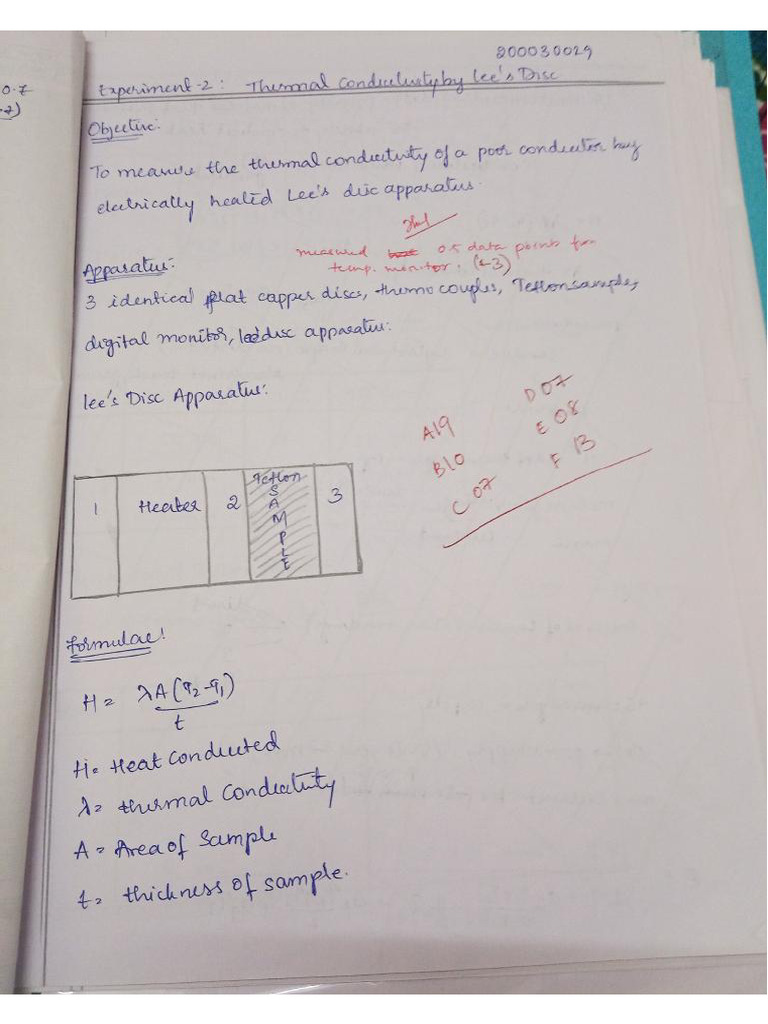 0.7
200030029
Experiment-2: Thermal Conductivity by Lee's Disc
Objective:
To measure the thermal conductivity of a poor conductor by
electrically heated Lee's disc apparatus.
measured 05 data points from
temp. monitor. (←3)
Apparatus:
3 identical flat capper discs, thermo couples, Teflon sample,
digital monitor, lee's disc apparatus.
Lee's Disc Apparatus:
A19 D 07
B10 E 08
C 07 F 13
1 Heater 2 Teflon SAMPLE 3
Formulae!
H = λA(T2-T1)
t
H = Heat Conducted
λ = thermal Conductivity
A = Area of Sample
t = thickness of sample.